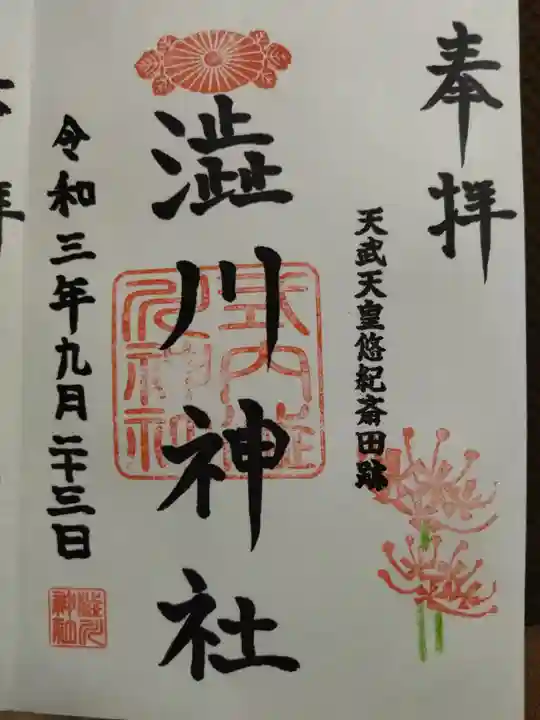 奉拝
天武天皇悠紀斎田跡
澁川神社
式内澁川神社
令和三年九月二十三日
澁川神社